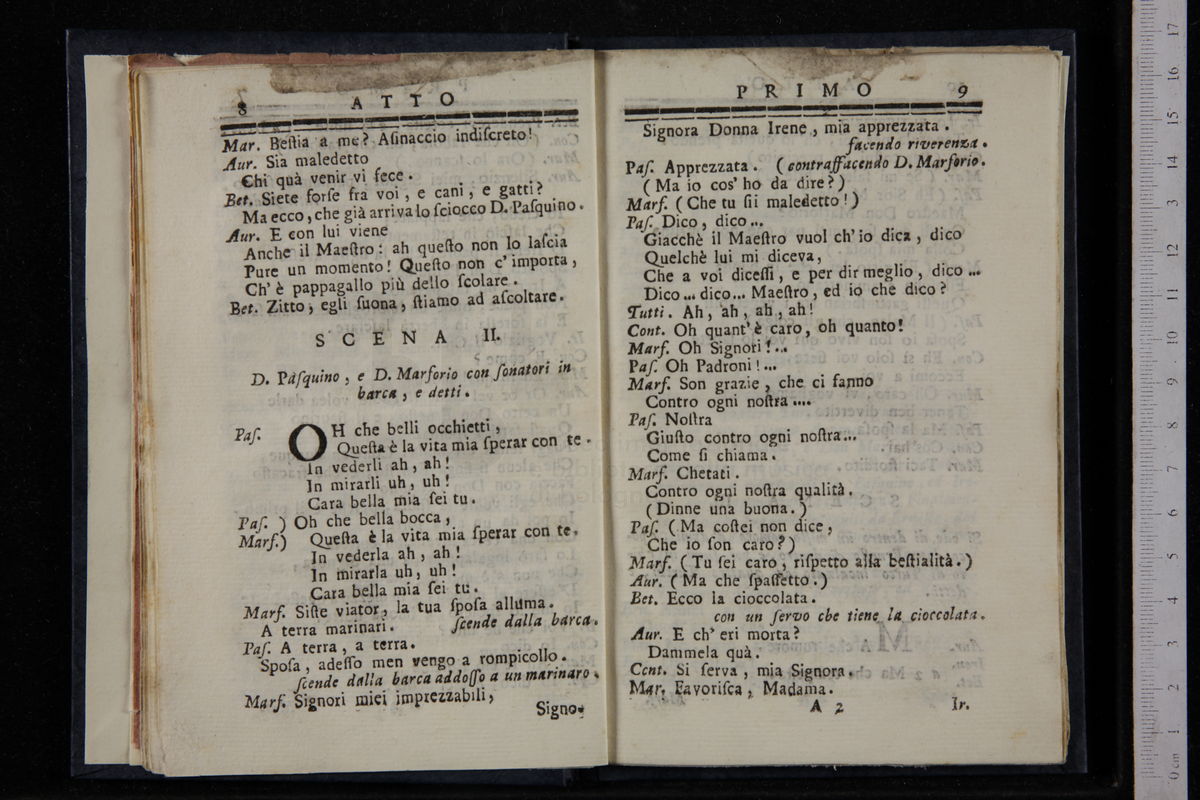 8 ATTO
Mar. Beſtia a me? Aſinaccio indiſcreto!
Aur. Sia maledetto
Chi quà venir vi fece.
Bet. Siete forſe fra voi, e cani, e gatti?
Ma ecco, che già arriva lo ſciocco D. Paſquino.
Aur. E con lui viene
Anche il Maeſtro: ah queſto non lo laſcia
Pure un momento! Queſto non c' importa,
Ch' è pappagallo più dello ſcolare.
Bet. Zitto, egli ſuona, ſtiamo ad aſcoltare.
SCENA II.
D. Paſquino, e D. Marforio con ſonatori in
barca, e detti.
Paſ. OH che belli occhietti,
Queſta è la vita mia ſperar con te.
In vederli ah, ah!
In mirarli uh, uh!
Cara bella mia ſei tu.
Paſ. ) Oh che bella bocca,
Marf.) Queſta è la vita mia ſperar con te.
In vederla ah, ah!
In mirarla uh, uh!
Cara bella mia ſei tu.
Marf. Siſte viator, la tua ſpoſa alluma.
A terra marinari. ſcende dalla barca.
Paſ. A terra, a terra.
Spoſa, adeſſo men vengo a rompicollo.
ſcende dalla barca addoſſo a un marinaro.
Marf. Signori miei imprezzabili,
Signo-
PRIMO 9
Signora Donna Irene, mia apprezzata.
facendo riverenza.
Paſ. Apprezzata. (contraffacendo D. Marforio.
(Ma io cos' ho da dire?)
Marf. (Che tu ſii maledetto!)
Paſ. Dico, dico...
Giacchè il Maeſtro vuol ch' io dica, dico
Quelchè lui mi diceva,
Che a voi diceſſi, e per dir meglio, dico ...
Dico... dico... Maeſtro, ed io che dico?
Tutti. Ah, ah, ah, ah!
Cont. Oh quant' è caro, oh quanto!
Marf. Oh Signori!...
Paſ. Oh Padroni!...
Marf. Son grazie, che ci fanno
Contro ogni noſtra ....
Paſ. Noſtra
Giuſto contro ogni noſtra...
Come ſi chiama.
Marf. Chetati.
Contro ogni noſtra qualità.
(Dinne una buona.)
Paſ. (Ma coſtei non dice,
Che io ſon caro?)
Marf. (Tu ſei caro, riſpetto alla beſtialità.)
Aur. (Ma che ſpaſſetto.)
Bet. Ecco la cioccolata.
con un ſervo che tiene la cioccolata.
Aur. E ch' eri morta?
Dammela quà.
Cont. Si ſerva, mia Signora.
Mar. Favoriſca, Madama.
A 2 Ir.